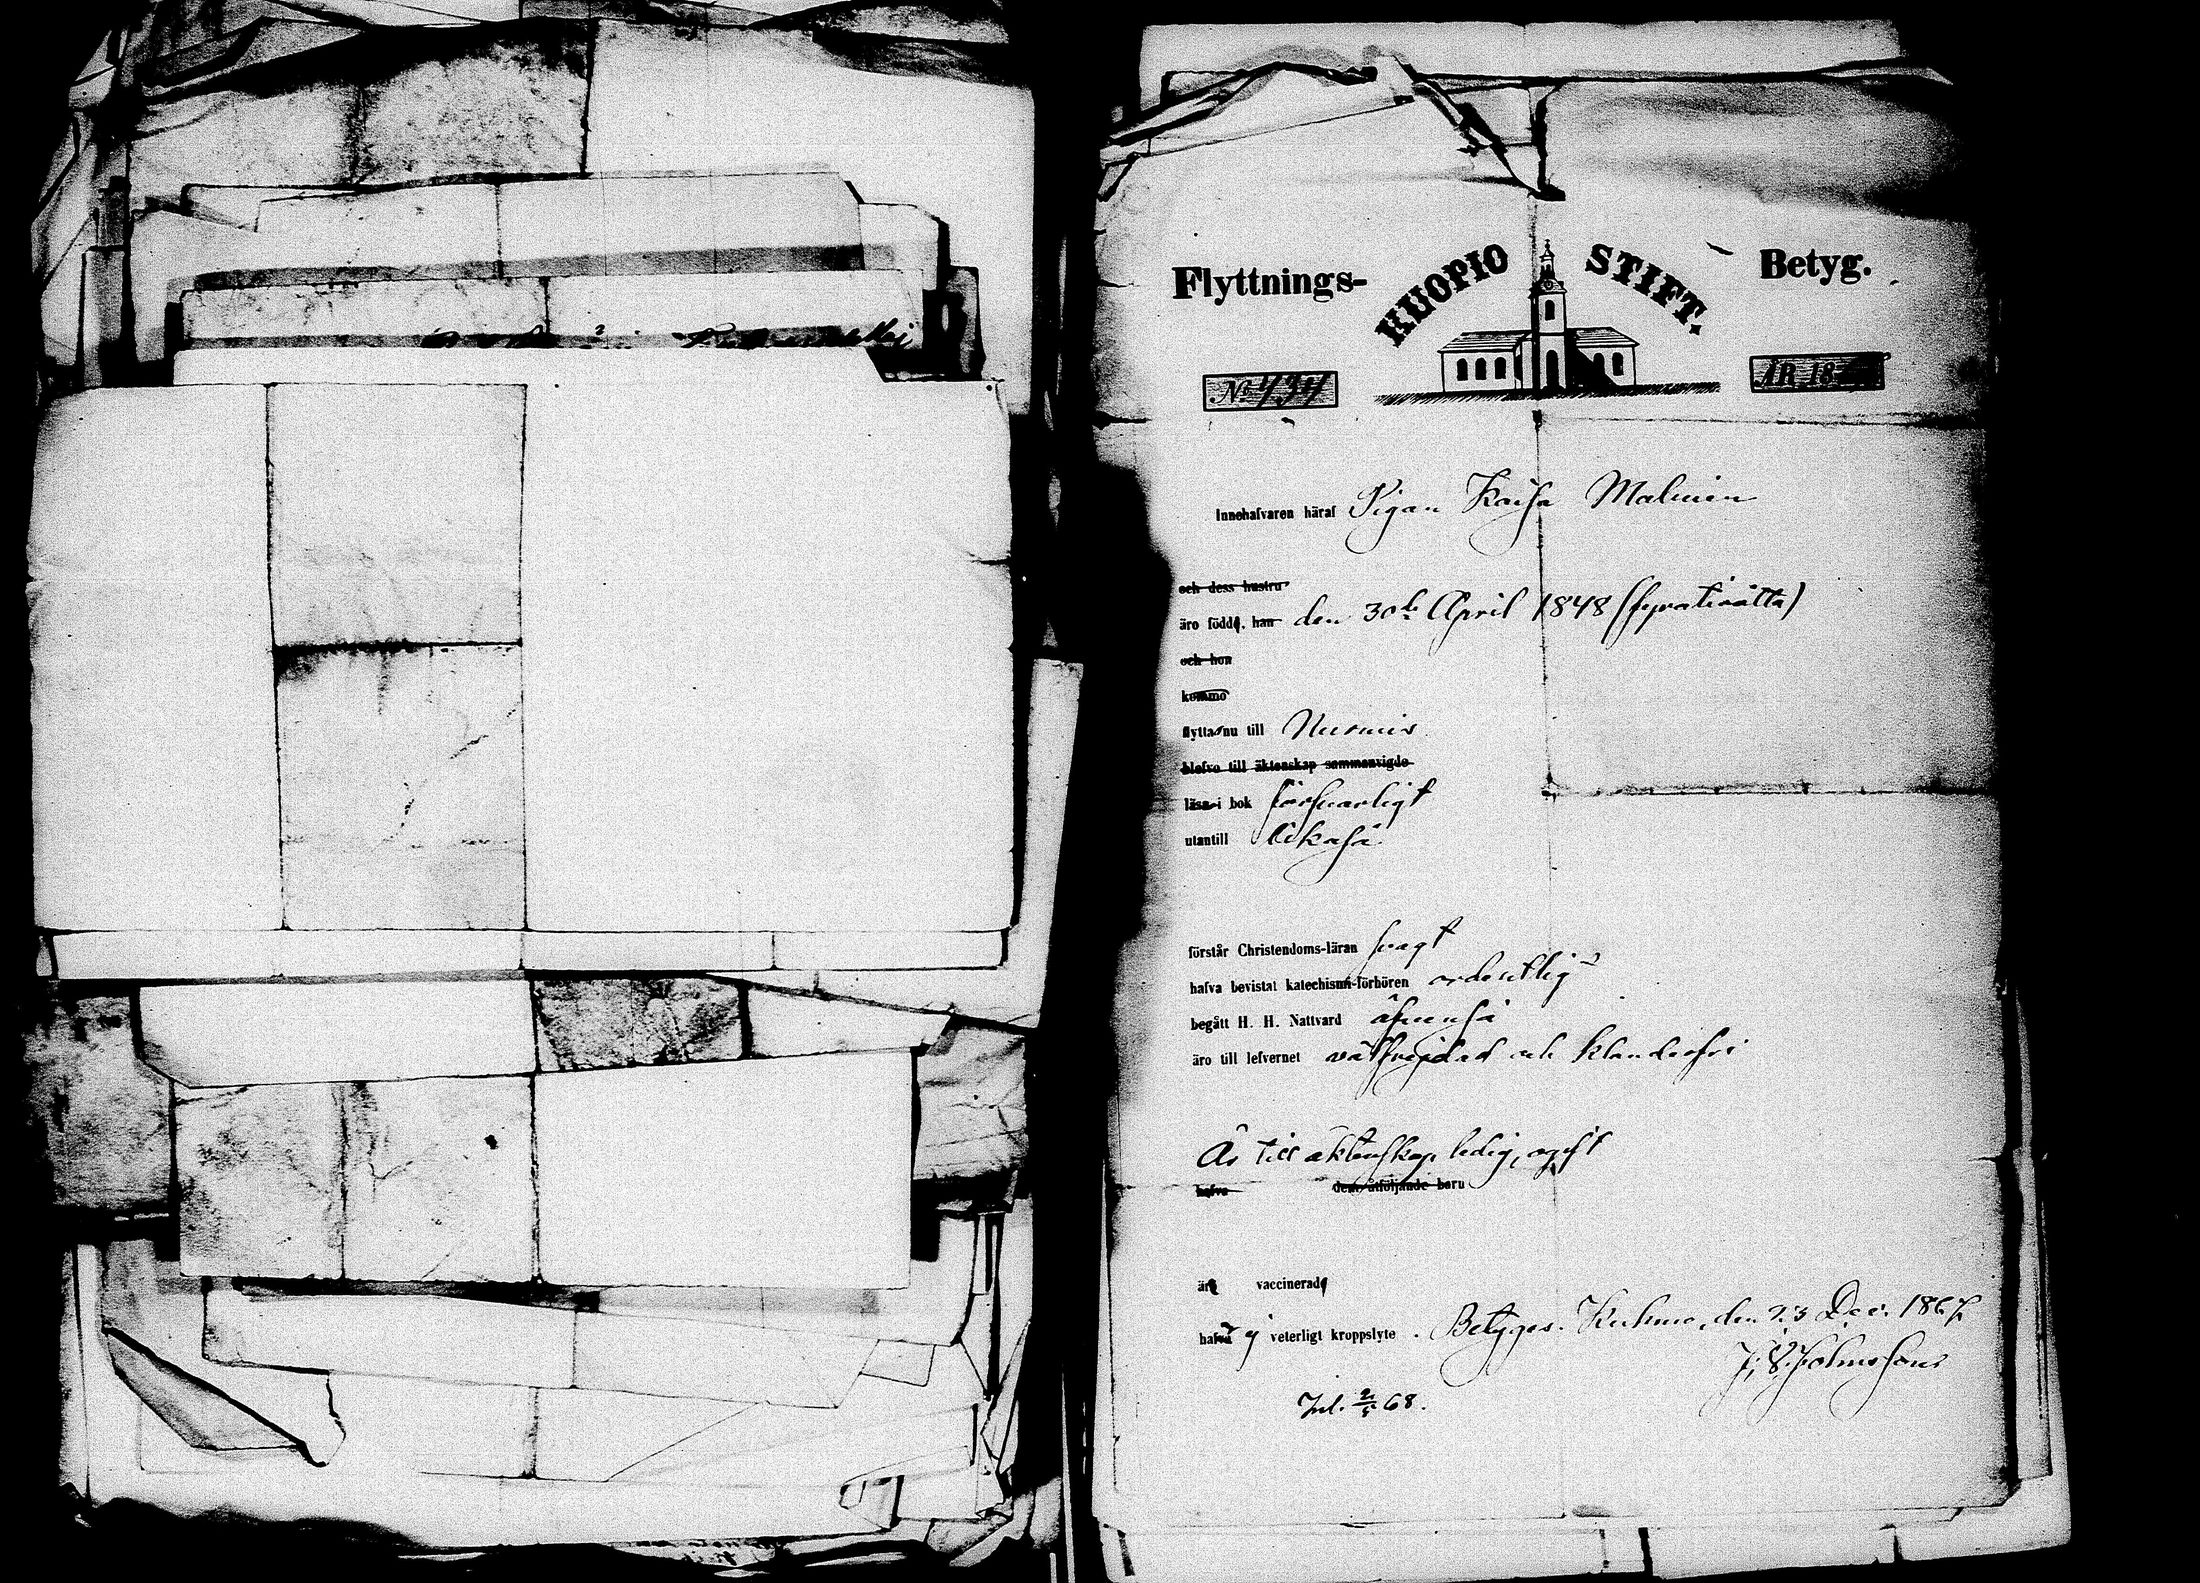 Flyttnings- KUOPIO STIFT. Betyg.
No 434 ÅR 18
Innehafvaren häraf Pigan Kaisa Malinen
och dess hustru
äro födde, han den 30de April 1848 (fyratiåtta)
och hon
komma
flytta nu till Nurmis
blefvo till äktenskap sammanvigde
läsa i bok försvarligt
utantill likaså
förstår Christendoms-läran svagt
hafva bevistat katechismi-förhören ordentligt
begått H. H. Nattvard äfvenså
äro till lefvernet välfrejdad och klanderfri
Är till äktenskap ledig, ogift
hafva dem åtföljande barn
äro vaccinerade
hafva ej veterligt kroppslyte. Betygas. Kuhmo, den 23 Dec. 1867
Inl. 2/5 68.